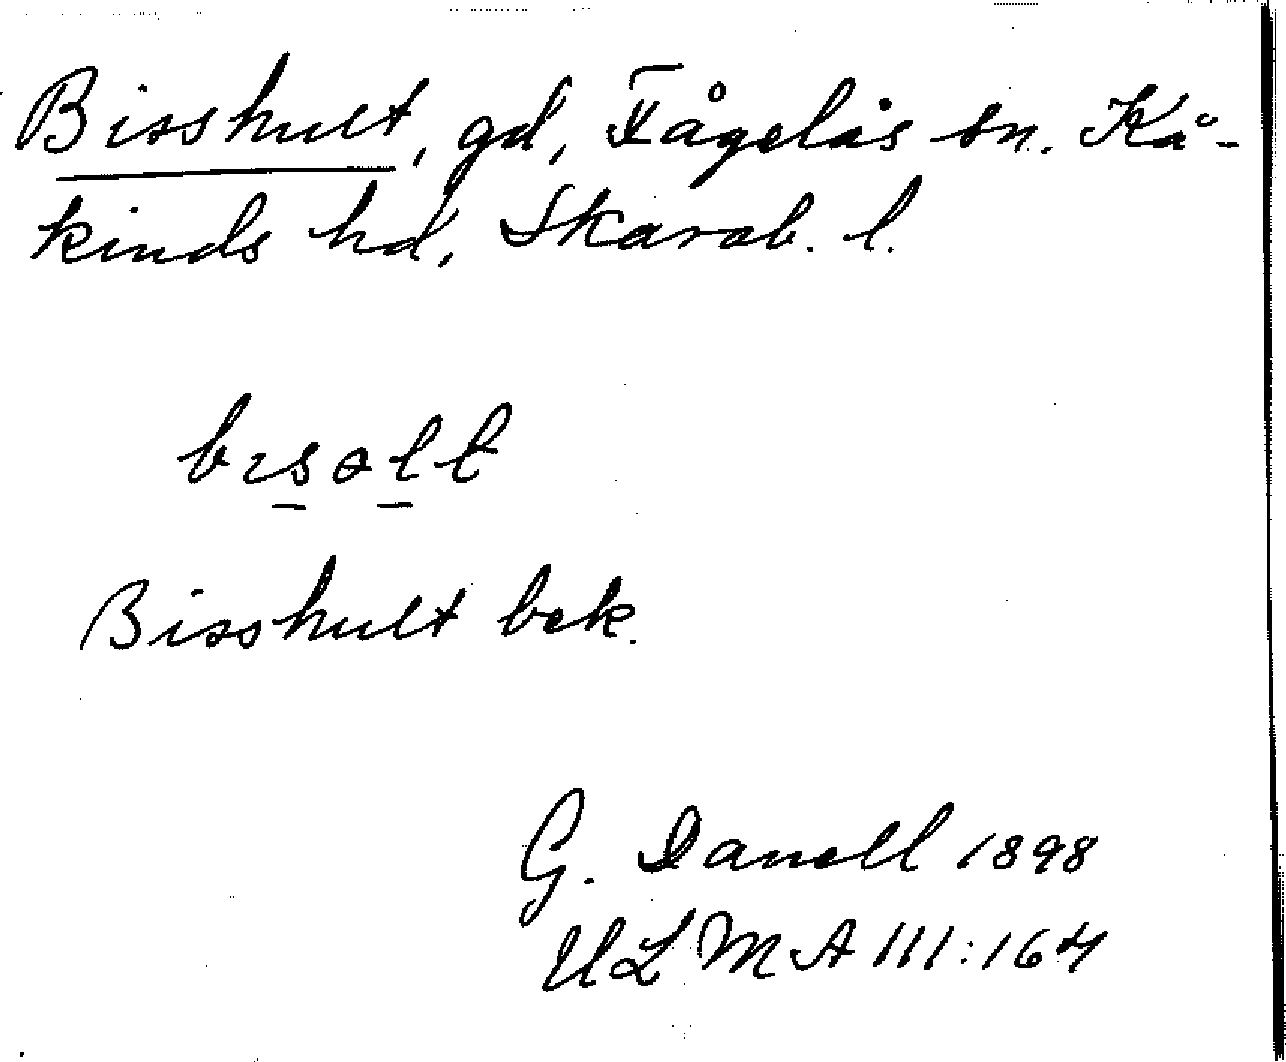 Bisshult, gd, Fågelås sn. Kå-
kinds hd, Skarab. l.
bısalt
Bisshult bek.
G. Danell 1898
ULMA 111:164